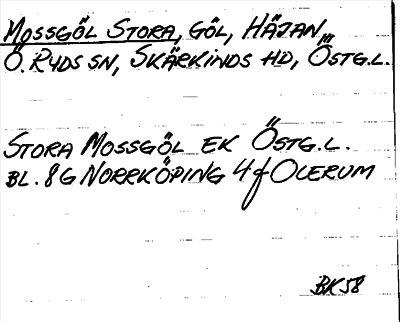 MOSSGÖL STORA, GÖL, HÄJAN,
Ö. RYDS SN, SKÄRKINDS HD, ÖSTG.L.
STORA MOSSGÖL EK ÖSTG.L.
BL. 8G NORRKÖPING 4f OLERUM
BK58